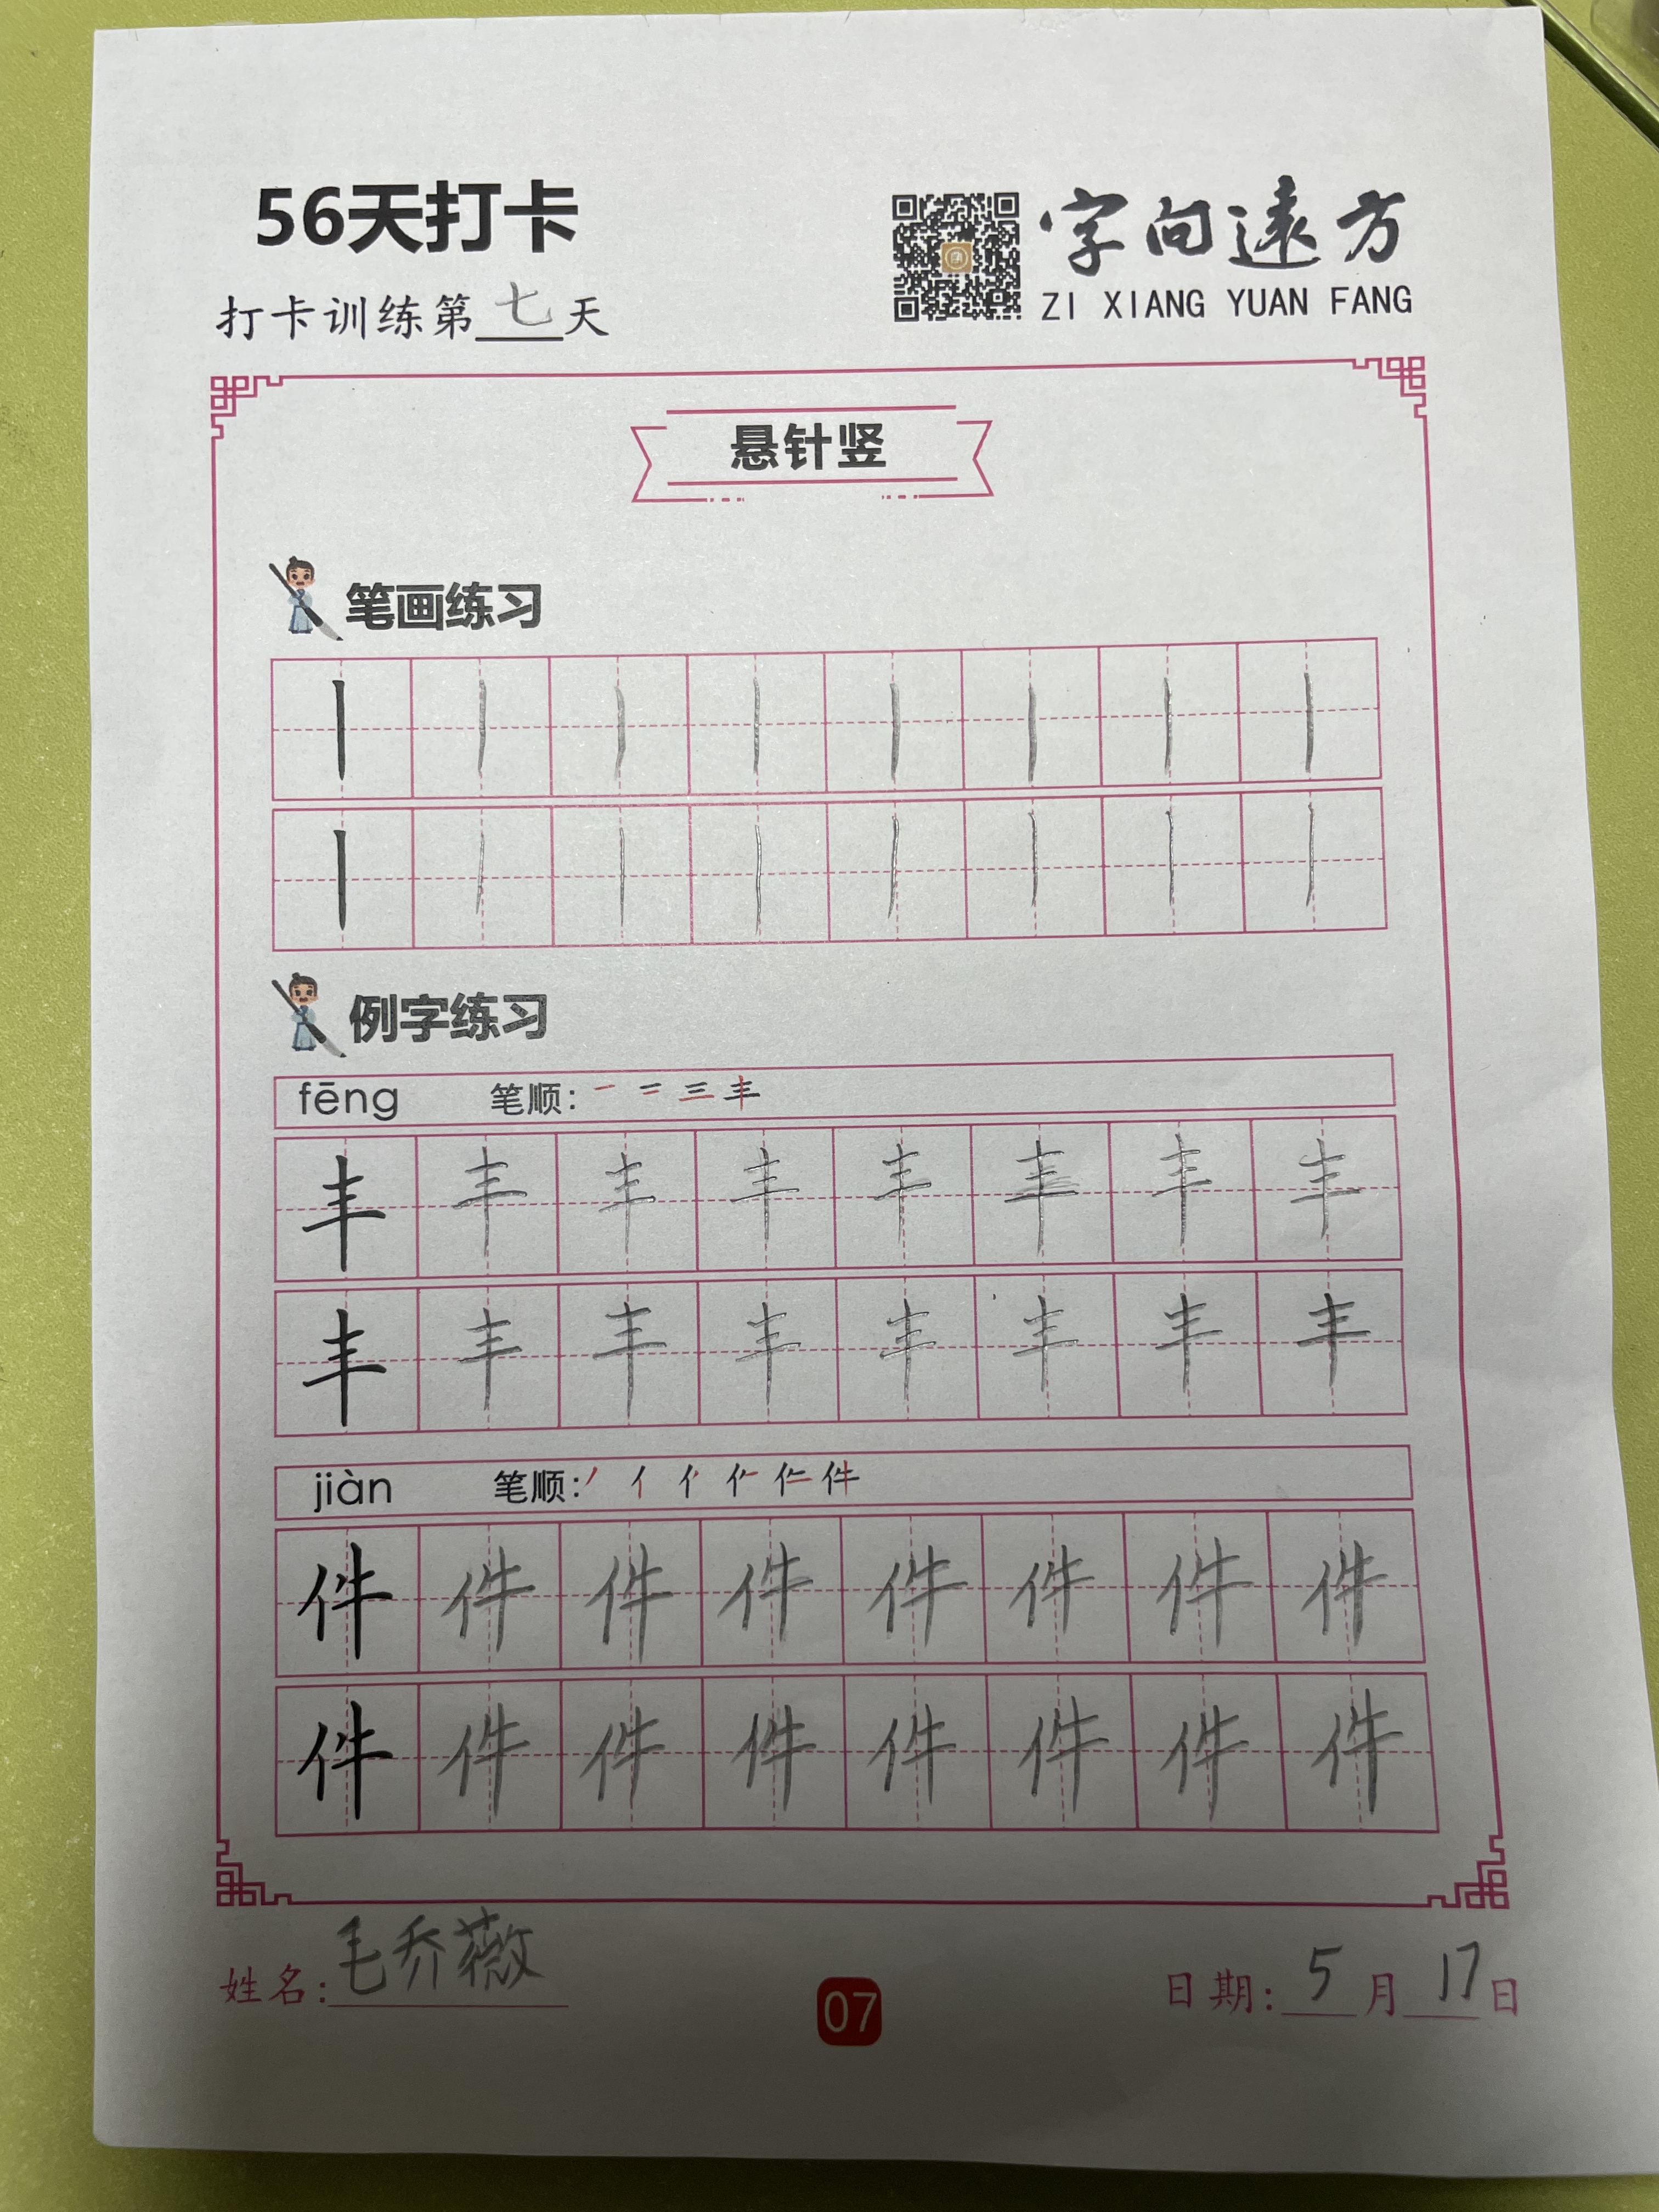 56天打卡
字向遠方
打卡训练第七天
ZI XIANG YUAN FANG
悬针竖
笔画练习
丨 丨 丨 丨 丨 丨 丨 丨
丨 丨 丨 丨 丨 丨 丨 丨
例字练习
fēng 笔顺: 一 二 三 丰
丰 丰 丰 丰 丰 丰 丰 丰
丰 丰 丰 丰 丰 丰 丰 丰
jiàn 笔顺: 件
件 件 件 件 件 件 件 件
件 件 件 件 件 件 件 件
姓名: 毛乔薇
07
日期: 5月17日